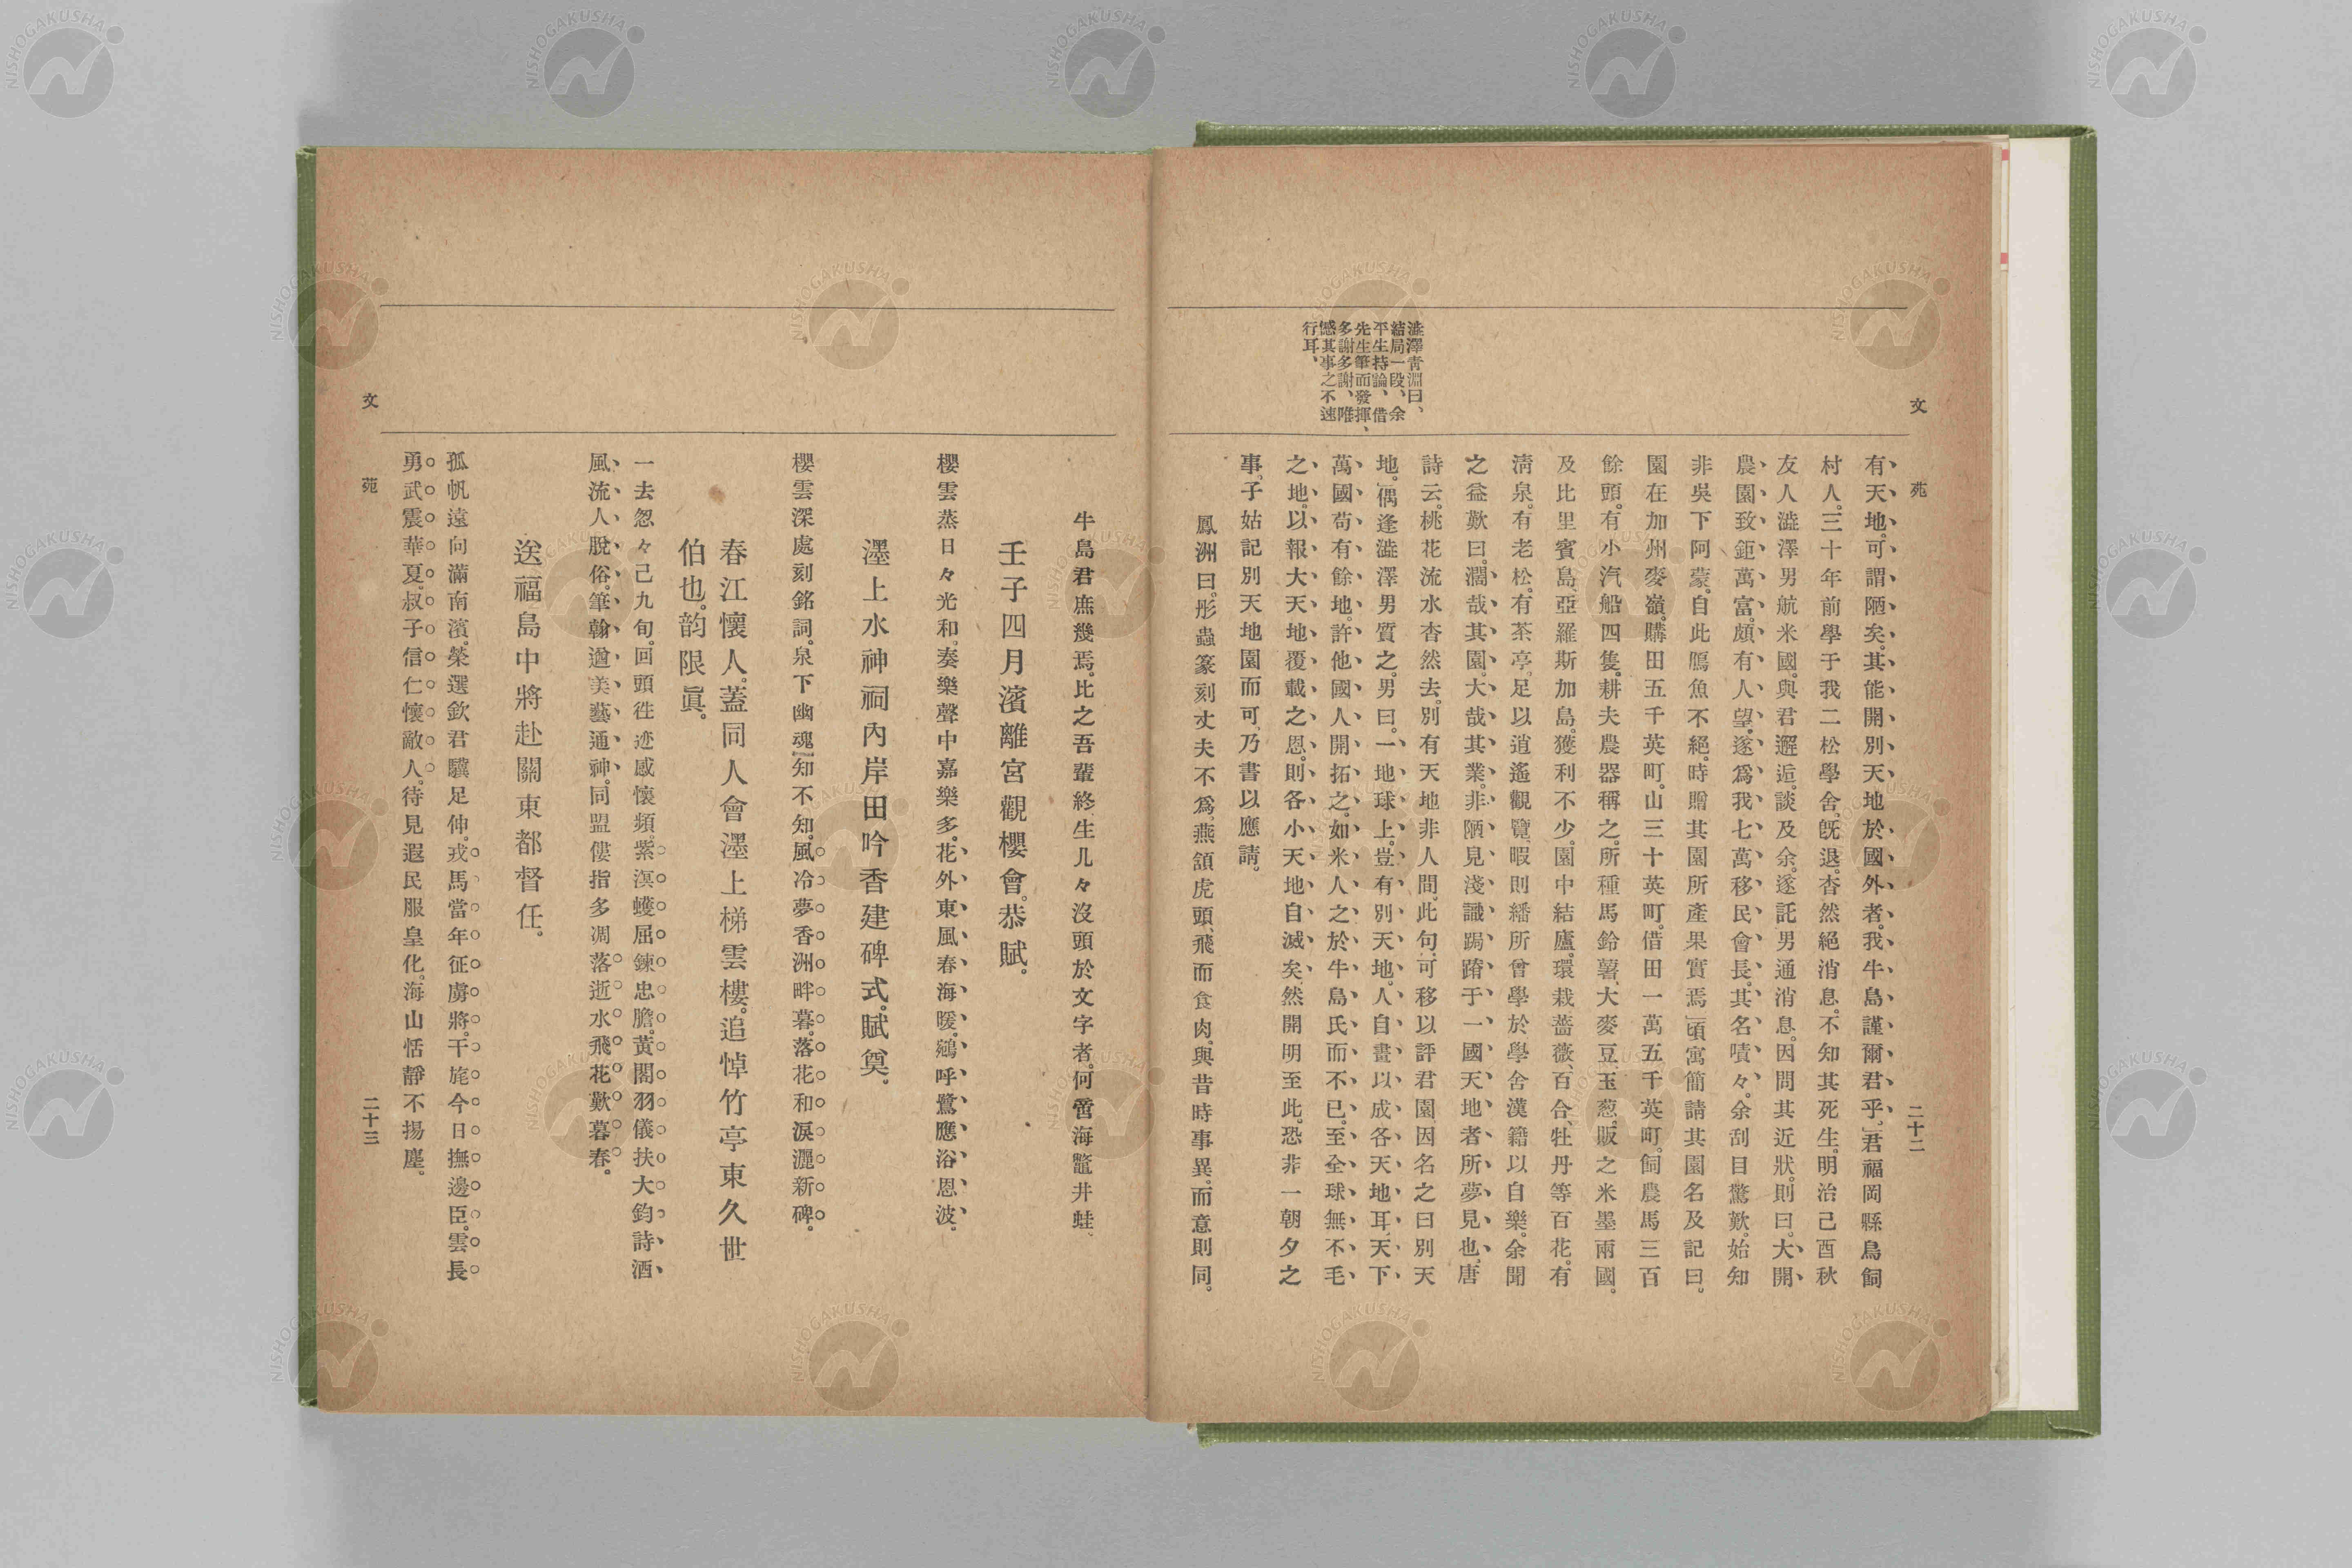 文苑
二十二
澁澤青淵曰、
結局一段、余
平生持論、借
先生筆而發揮、
多謝多謝、唯
憾其事之不速
行耳、
有天地。可謂陋矣。其能開別天地於國外者。我牛島謹爾君乎。君福岡縣鳥飼
村人。三十年前學于我二松學舍。旣退。杳然絕消息。不知其死生。明治己酉秋
友人澁澤男航米國。與君邂逅。談及余。遂託男通消息。因問其近狀。則曰。大開
農園。致鉅萬富。頗有人望。遂爲我七萬移民會長。其名嘖々。余刮目驚歎。始知
非吳下阿蒙。自此鴈魚不絕。時贈其園所產果實焉。頃寓簡請其園名及記曰。
園在加州麥嶺。購田五千英町。山三十英町。借田一萬五千英町。飼農馬三百
餘頭。有小汽船四隻。耕夫農器稱之。所種馬鈴薯、大麥豆、玉葱。販之米墨兩國。
及比里賓島、亞羅斯加島。獲利不少。園中結廬。環栽薔薇、百合、牡丹等百花。有
淸泉。有老松。有茶亭。足以逍遙觀覽。暇則繙所曾學於學舍漢籍以自樂。余聞
之益歎曰。濶哉其園。大哉其業。非陋見淺識跼蹐于一國天地者所夢見也。唐
詩云。桃花流水杳然去。別有天地非人間。此句可移以評君園。因名之曰別天
地。偶逢澁澤男質之。男曰。一地球上。豈有別天地。人自畫以成各天地耳。天下
萬國苟有餘地。許他國人開拓之。如米人之於牛島氏而不已。至全球無不毛
之地。以報大天地覆載之恩。則各小天地自滅矣。然開明至此。恐非一朝夕之
事。子姑記別天地園而可。乃書以應請。
鳳洲曰。彤蟲篆刻丈夫不爲。燕頷虎頭、飛而食肉。與昔時事異。而意則同。
牛島君庶幾焉。比之吾輩終生儿々沒頭於文字者。何啻海鼈井蛙、
壬子四月濱離宮觀櫻會。恭賦。
櫻雲蒸日々光和。奏樂聲中嘉樂多。花外東風春海暖。鷗呼鷺應浴恩波。
濹上水神祠內岸田吟香建碑式。賦奠。
櫻雲深處刻銘詞。泉下幽魂知不知。風冷夢香洲畔暮。落花和淚灑新碑。
春江懷人。蓋同人會濹上梯雲樓。追悼竹亭東久世
伯也。韵限眞。
一去忽々已九旬。回頭徃迹感懷頻。紫溟蠖屈鍊忠膽。黃閣羽儀扶大鈞。詩酒
風流人脫俗。筆翰遒美藝通神。同盟僂指多凋落。逝水飛花歎暮春。
送福島中將赴關東都督任。
孤帆遠向滿南濱。榮選欽君驥足伸。戎馬當年征虜將。干旄今日撫邊臣。雲長
勇武震華夏。叔子信仁懷敵人。待見遐民服皇化。海山恬靜不揚塵。
文苑
二十三